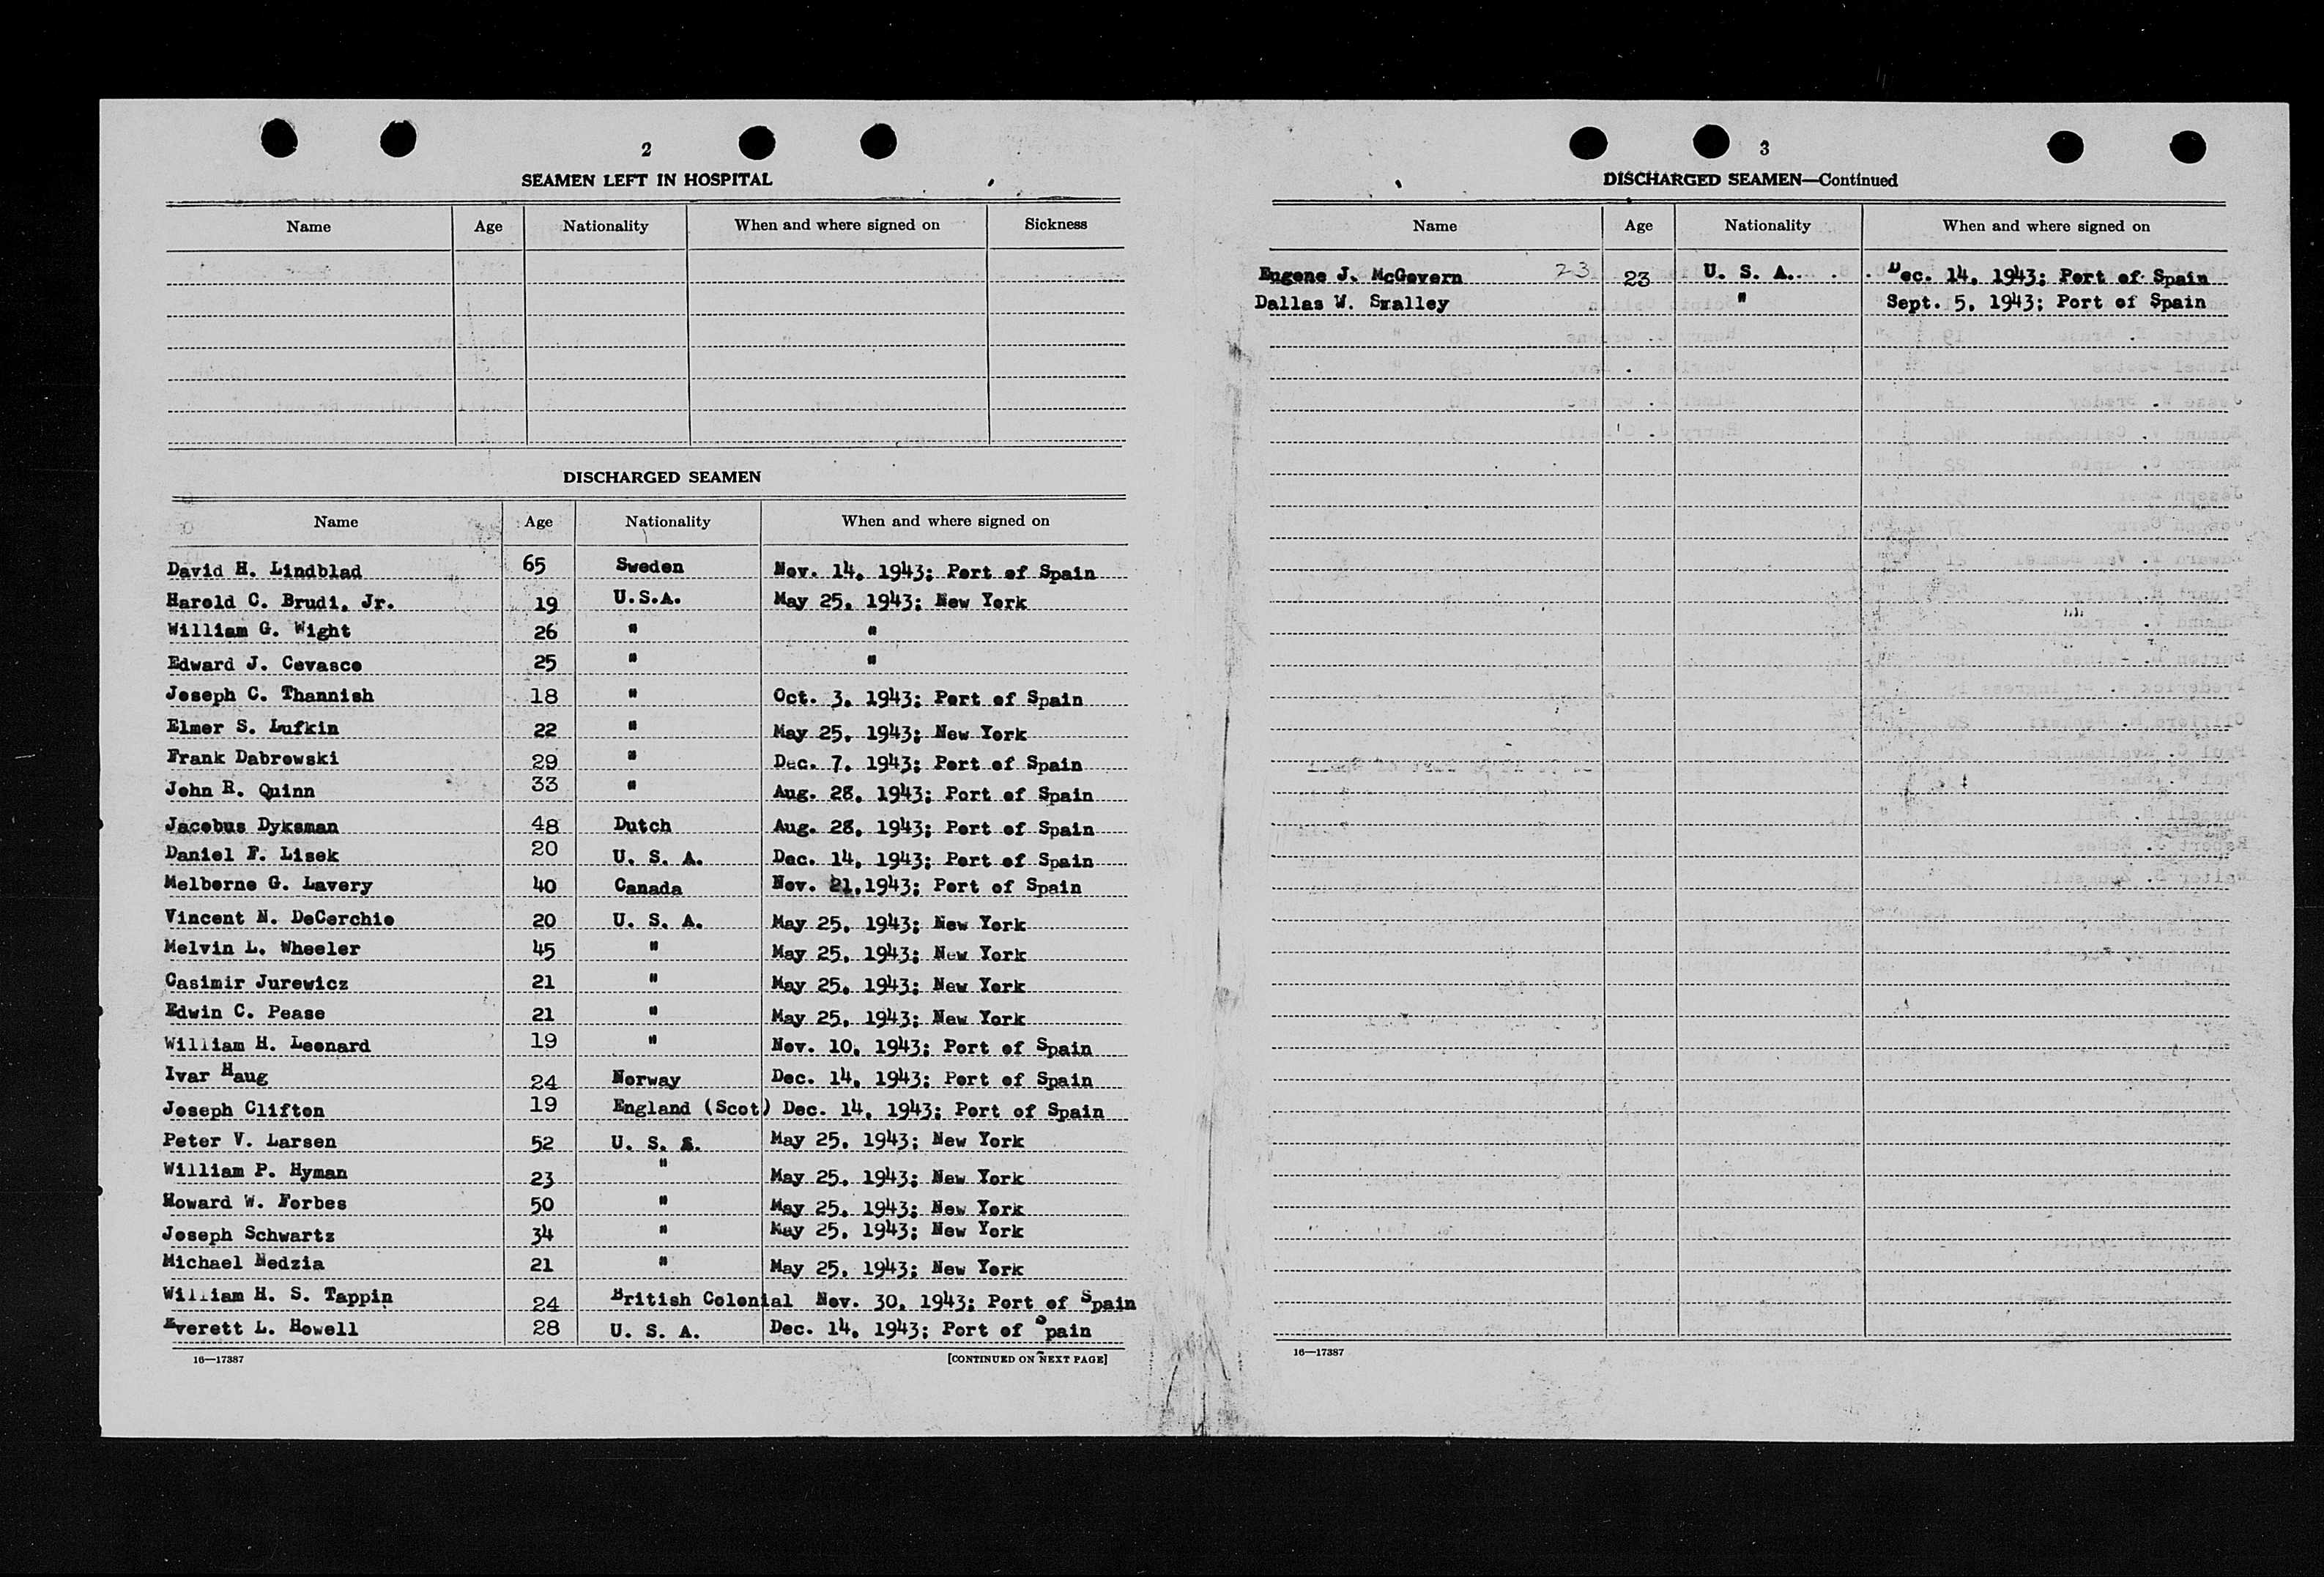 2
SEAMEN LEFT IN HOSPITAL
Name Age Nationality When and where signed on Sickness
DISCHARGED SEAMEN
Name Age Nationality When and where signed on
David H. Lindblad 65 Sweden Nov. 14, 1943; Port of Spain
Harold C. Brudi, Jr. 19 U.S.A. May 25, 1943; New York
William G. Wight 26 " "
Edward J. Cevasco 25 " "
Joseph C. Thannish 18 " Oct. 3, 1943; Port of Spain
Elmer S. Lufkin 22 " May 25, 1943; New York
Frank Dabrowski 29 " Dec. 7, 1943; Port of Spain
John R. Quinn 33 " Aug. 28, 1943; Port of Spain
Jacobus Dyksman 48 Dutch Aug. 28, 1943; Port of Spain
Daniel F. Lisek 20 U. S. A. Dec. 14, 1943; Port of Spain
Melborne G. Lavery 40 Canada Nov. 21, 1943; Port of Spain
Vincent N. DeCerchio 20 U. S. A. May 25, 1943; New York
Melvin L. Wheeler 45 " May 25, 1943; New York
Casimir Jurewicz 21 " May 25, 1943; New York
Edwin C. Pease 21 " May 25, 1943; New York
William H. Leonard 19 " Nov. 10, 1943; Port of Spain
Ivar Haug 24 Norway Dec. 14, 1943; Port of Spain
Joseph Clifton 19 England (Scot) Dec. 14, 1943; Port of Spain
Peter V. Larsen 52 U. S. A. May 25, 1943; New York
William P. Hyman 23 " May 25, 1943; New York
Howard W. Forbes 50 " May 25, 1943; New York
Joseph Schwartz 34 " May 25, 1943; New York
Michael Nedzia 21 " May 25, 1943; New York
William H. S. Tappin 24 British Colonial Nov. 30, 1943; Port of Spain
Everett L. Howell 28 U. S. A. Dec. 14, 1943; Port of Spain
16—17387 [CONTINUED ON NEXT PAGE]
3
DISCHARGED SEAMEN—Continued
Name Age Nationality When and where signed on
Eugene J. McGovern 23 23 U. S. A. Dec. 14, 1943; Port of Spain
Dallas W. Smalley " Sept. 5, 1943; Port of Spain
16—17387